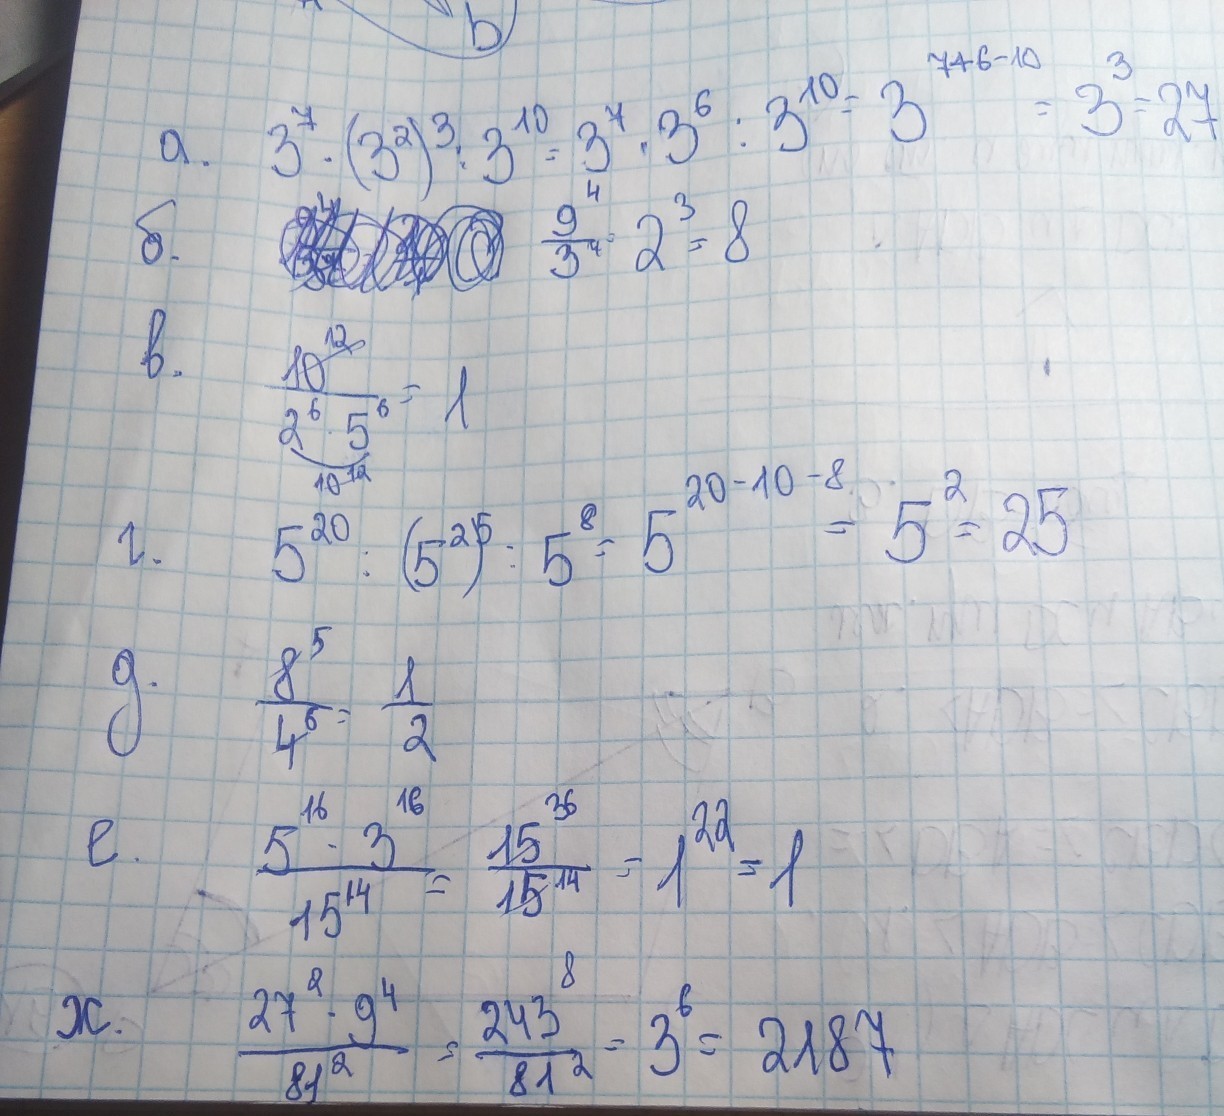 b
а. 3^7 · (3^2)^3 : 3^10 = 3^7 · 3^6 : 3^10 = 3^(7+6-10) = 3^3 = 27
б. 9^4/3^4 = 2^3 = 8
в. 10^12/(2^6 · 5^6) = 1
10^12
г. 5^20 : (5^2)^5 : 5^8 = 5^(20-10-8) = 5^2 = 25
д. 8^5/4^6 = 1/2
е. (5^16 · 3^16)/15^14 = 15^36/15^14 = 1^22 = 1
ж. (27^2 · 9^4)/81^2 = 243^8/81^2 = 3^6 = 2187